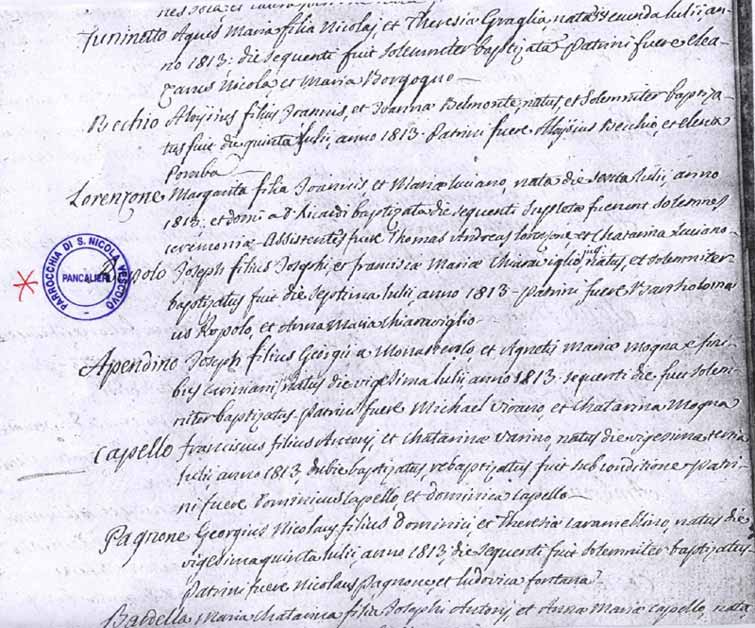 Juninetto Agnes Maria filia Nicolaj et Theresiæ Graglia, nata secunda Iulii, an-
no 1813: die sequenti fuit solemniter baptizata. Patrini fuere
Nicola et Maria Borgogno-
Bechio Aloysius filius Joannis, et Joannæ Belmonte, natus, et solemniter baptiza-
tus fuit die quinta Iulii, anno 1813. Patrini fuere Aloysius Bechio, et
Pomba
Lorenzone Margarita filia Joannis et Mariæ Luciano, nata die sexta Iulii, anno
1813, et domi a baptizata die sequenti suppletæ fuerunt solemnes
ceremoniæ. Assistentes fuere Thomas Andreas Lorenzone, et Chatarina Luciano-
Ropolo Joseph filius Josephi et Franciscæ Mariæ Chiaraviglio, natus, et solemniter
baptizatus fuit die septima Iulii, anno 1813 - Patrini fuere Bartholomæ
us Ropolo, et Anna Maria Chiaraviglio-
PARROCCHIA DI S. NICOLA VESCOVO
PANCALIERI
Apendino Joseph filius Georgii a Monasterolo, et Agnetis Mariæ Mogna e fini-
bus natus die vigesima Iulii anno 1813. sequenti die fuit solem-
niter baptizatus. Patrini fuere Michael et Chatarina Mogna
Capello Franciscus filius Antonj, et Chatarinæ Vanino, natus die vigesima tertia
Iulii anno 1813, dubie baptizatus, rebaptizatus fuit sub conditione. Patri-
ni fuere Dominicus Capello et Dominica Capello-
Pagnone Georgius Nicolaus filius Dominici, et Theresiæ Caramellino, natus die
vigesima quinta Iulii, anno 1813, die sequenti fuit solemniter baptizatus
Patrini fuere Nicolaus Pagnone, et Ludovica Fontana
Bardella Maria Chatarina filia Josephi Antonj, et Annæ Mariæ Capello, nata,